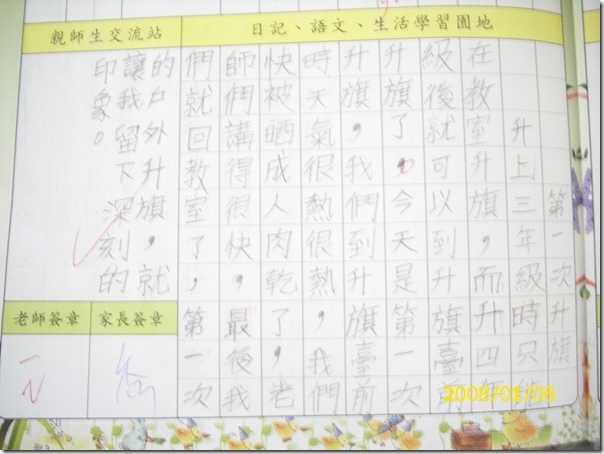 親師生交流站
日記、語文、生活學習園地
第一次升旗
升上三年級時只
在教室升旗，而升四
級後就可以到升旗臺
升旗了，今天是第一次
升旗，我們到升旗臺前
時天氣很熱很熱，我們
快被晒成人肉乾了，老
師們講得很快，最後我
們就回教室了，第一次
的戶外升旗，就
讓我留下深刻的
印象。
老師簽章
家長簽章
2009/01/06